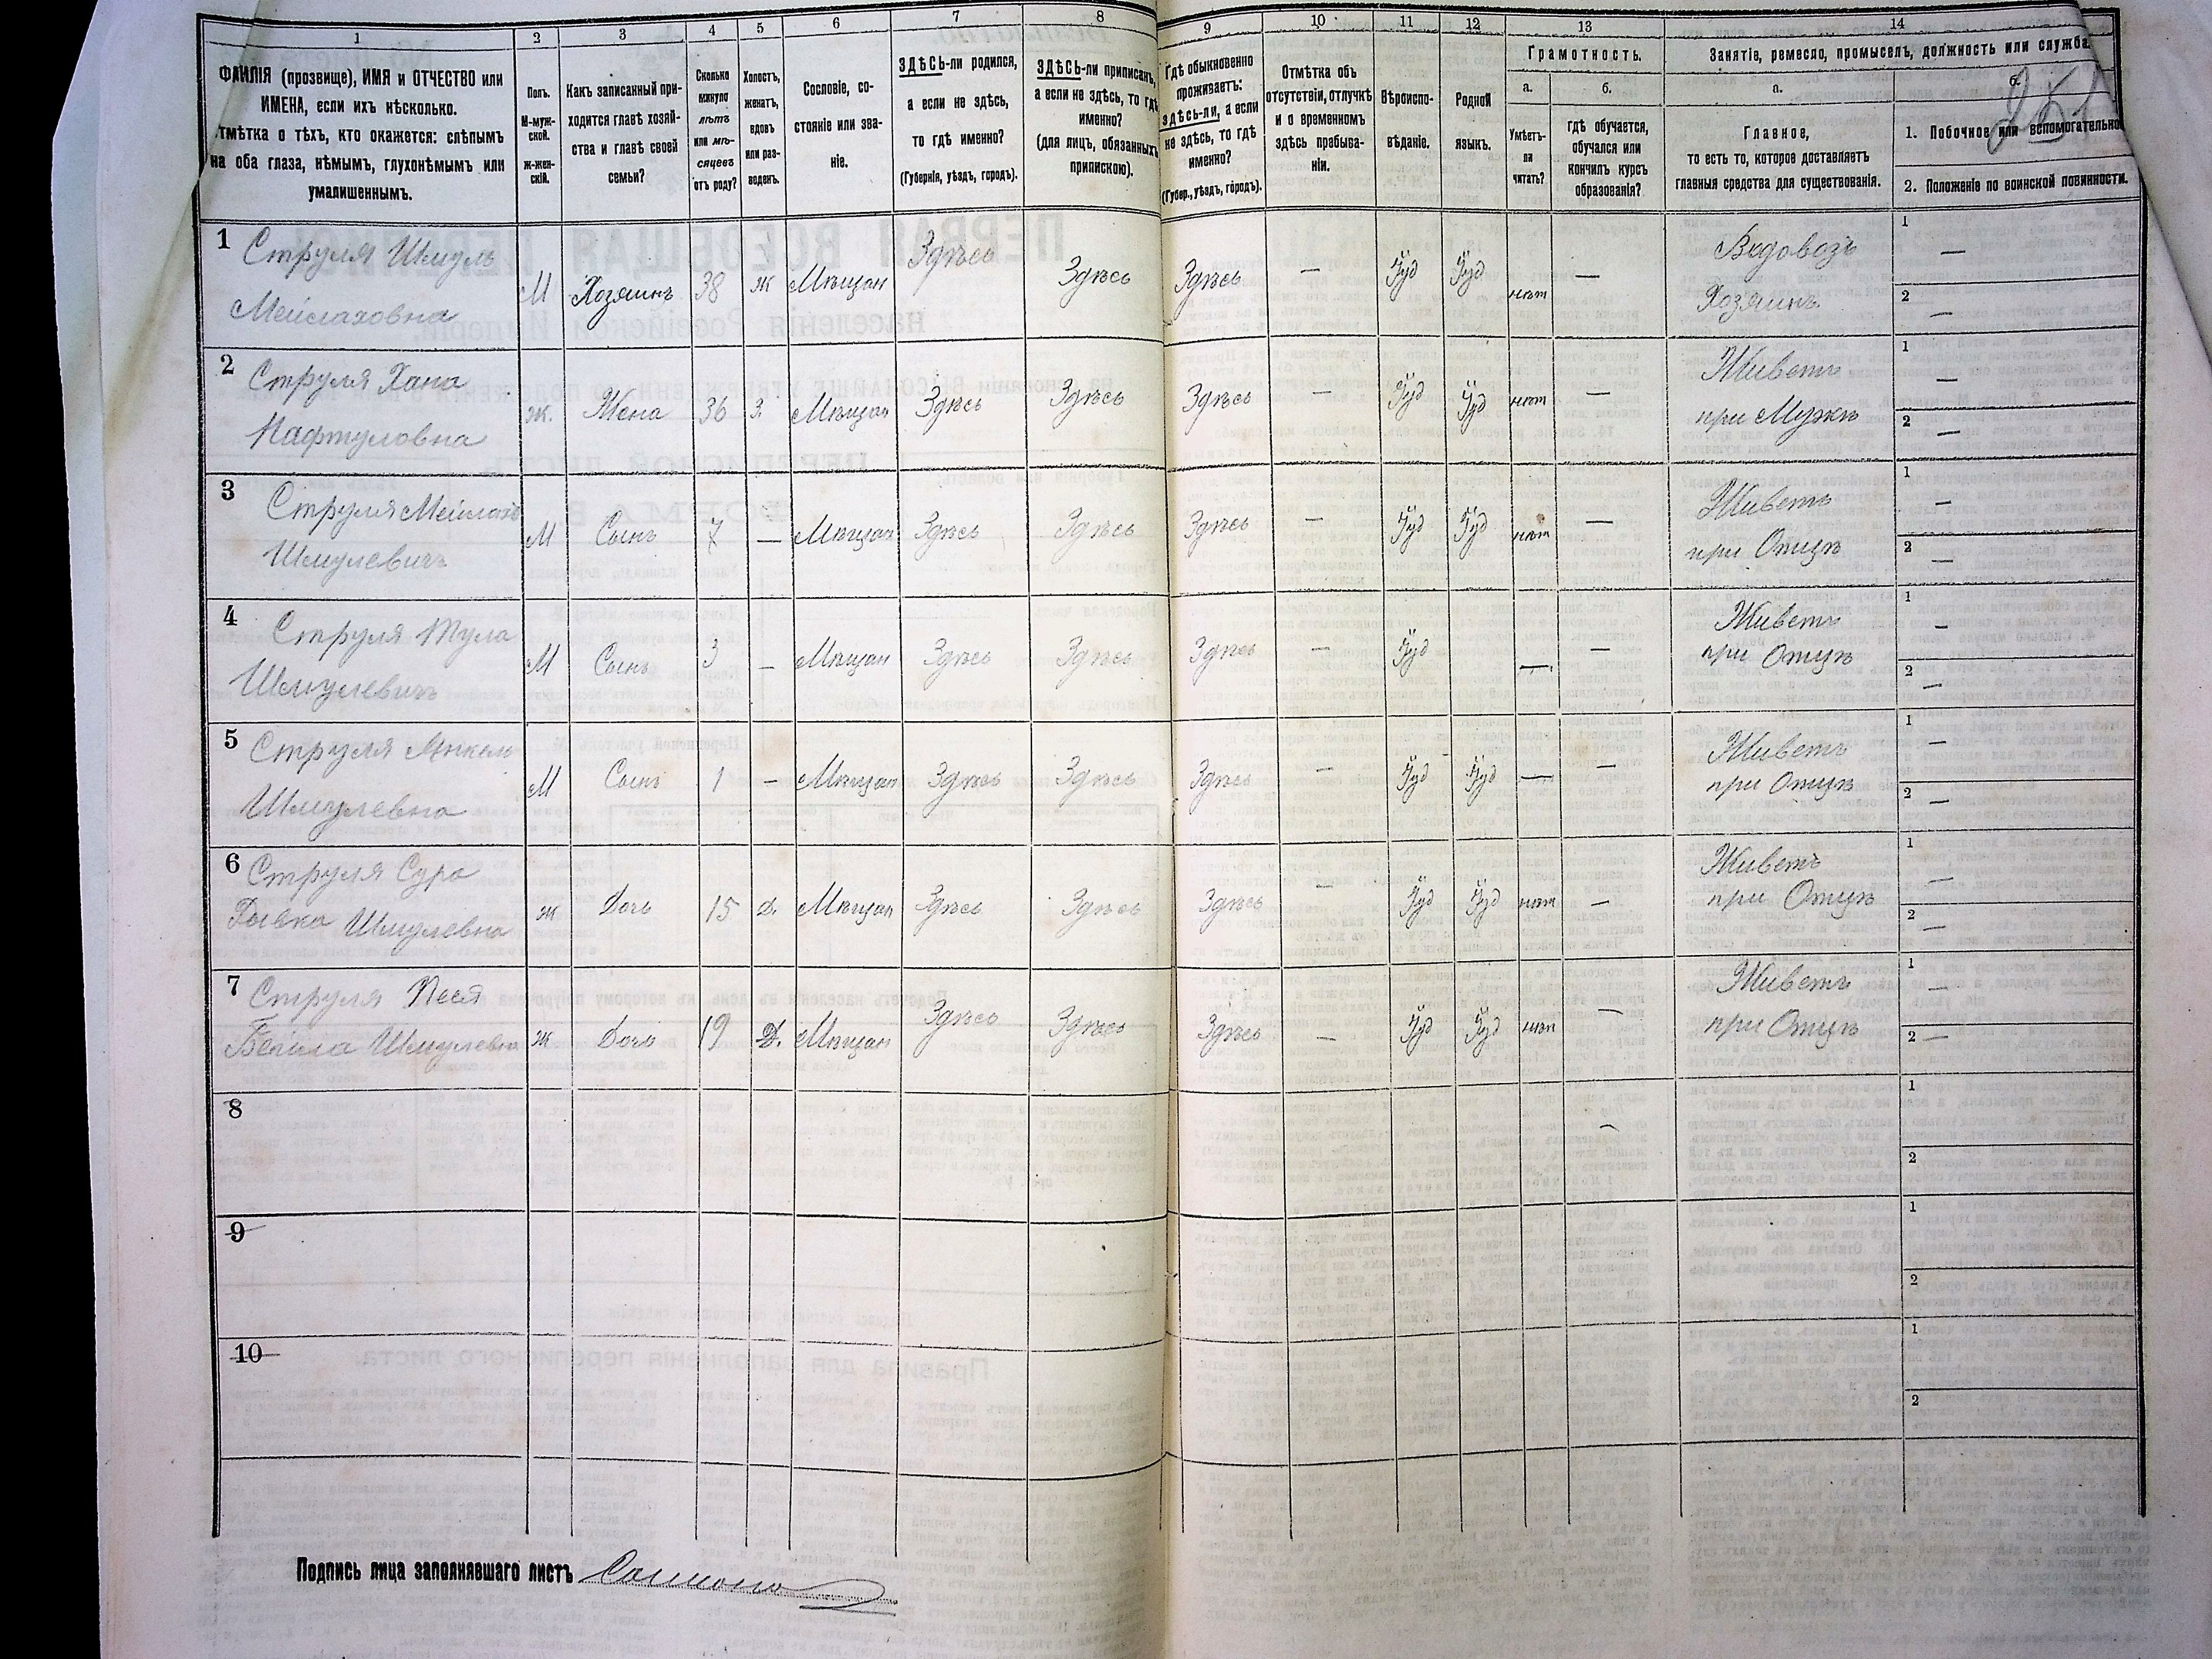 1 2 3 4 5 6 7 8 9 10 11 12 13 14
ФАМИЛІЯ (прозвище), ИМЯ и ОТЧЕСТВО или
ИМЕНА, если ихъ нѣсколько.
Отмѣтка о тѣхъ, кто окажется: слѣпымъ
на оба глаза, нѣмымъ, глухонѣмымъ или
умалишеннымъ.
Полъ.
М-муж-
ской.
ж-жен-
скій.
Какъ записанный при-
ходится главѣ хозяй-
ства и главѣ своей
семьи?
Сколько
минуло
лѣтъ
или мѣ-
сяцевъ
отъ роду?
Холостъ,
женатъ,
вдовъ
или раз-
веденъ.
Сословіе, со-
стояніе или зва-
ніе.
ЗДѢСЬ-ли родился,
а если не здѣсь,
то гдѣ именно?
(Губернія, уѣздъ, городъ).
ЗДѢСЬ-ли приписанъ,
а если не здѣсь, то гдѣ
именно?
(для лицъ, обязанныхъ
припискою).
Гдѣ обыкновенно
проживаетъ:
здѣсь-ли, а если
не здѣсь, то гдѣ
именно?
(Губер., уѣздъ, городъ).
Отмѣтка объ
отсутствіи, отлучкѣ
и о временномъ
здѣсь пребыва-
ніи.
Вѣроиспо-
вѣданіе.
Родной
языкъ.
Грамотность.
а.
Умѣетъ-
ли
читать?
б.
гдѣ обучается,
обучался или
кончилъ курсъ
образованія?
Занятіе, ремесло, промыселъ, должность или служба
а.
Главное,
то есть то, которое доставляетъ
главныя средства для существованія.
б.
1. Побочное или вспомогательно
2. Положеніе по воинской повинности.
1 Струля Шмуль
Мейлаховна
М Хозяинъ 38 ж Мѣщан Здѣсь Здѣсь Здѣсь — Іуд Іуд нѣт —
Водовозъ
Хозяинъ
1 —
2 —
2 Струля Хана
Нафтуловна
ж. Жена 36 З. Мѣщан Здѣсь Здѣсь Здѣсь — Іуд Іуд нѣт —
Живетъ
при Мужѣ
1 —
2 —
3 Струля Мейлахъ
Шмулевичъ
М Сынъ 7 — Мѣщан Здѣсь Здѣсь Здѣсь — Іуд Іуд нѣт —
Живетъ
при Отцѣ
1 —
2 —
4 Струля
Шмулевичъ
М Сынъ 3 — Мѣщан Здѣсь Здѣсь Здѣсь — Іуд — —
Живетъ
при Отцѣ
1 —
2 —
5 Струля Янкель
Шмулевна
М Сынъ 1 — Мѣщан Здѣсь Здѣсь Здѣсь — Іуд Іуд — —
Живетъ
при Отцѣ
1 —
2 —
6 Струля Сура
Рывка Шмулевна
ж Дочь 15 Д. Мѣщан Здѣсь Здѣсь Здѣсь — Іуд Іуд нѣт —
Живетъ
при Отцѣ
1 —
2 —
7 Струля Песя
Бейла Шмулевна
ж Дочь 19 Д. Мѣщан Здѣсь Здѣсь Здѣсь — Іуд Іуд нѣт —
Живетъ
при Отцѣ
1 —
2 —
8
—
1
2
9
1
2
10
1
2
Подпись лица заполнявшаго листъ